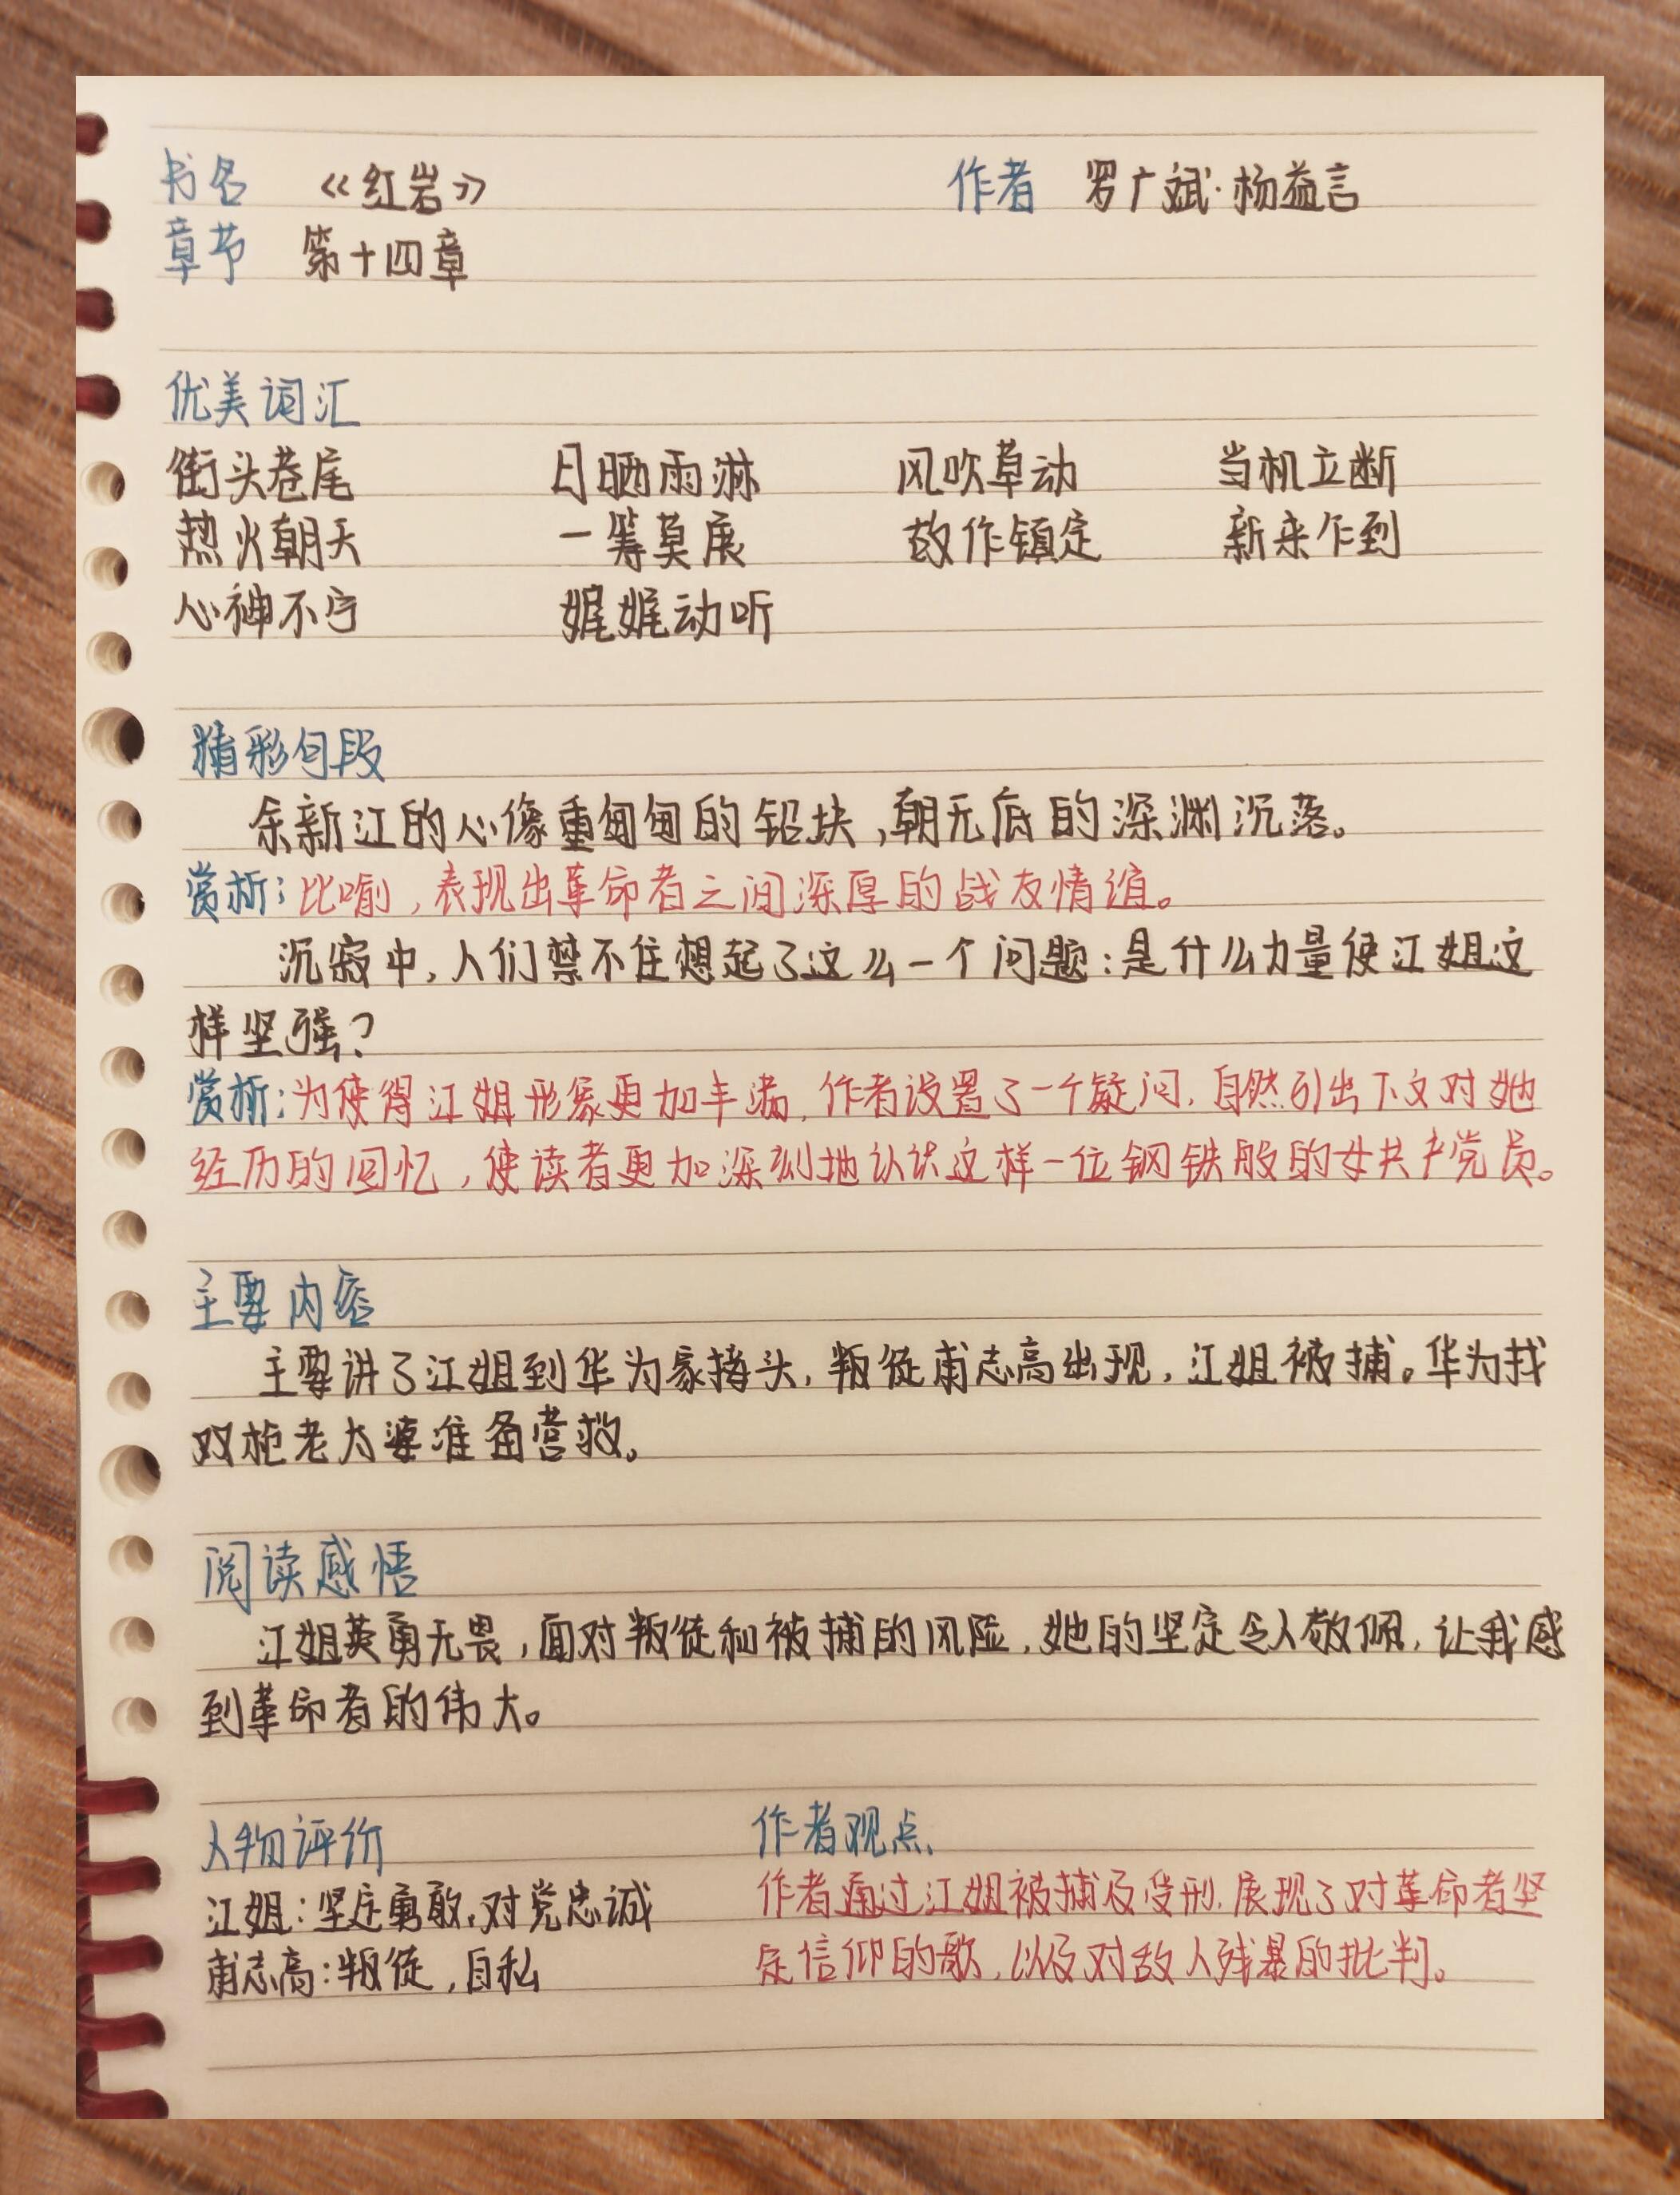 书名 《红岩》 作者 罗广斌·杨益言
章节 第十四章
优美词汇
街头巷尾 日晒雨淋 风吹草动 当机立断
热火朝天 一筹莫展 故作镇定 新来乍到
心神不宁 娓娓动听
精彩句段
余新江的心像重甸甸的铅块,朝无底的深渊沉落。
赏析:比喻,表现出革命者之间深厚的战友情谊。
沉寂中,人们禁不住想起了这么一个问题:是什么力量使江姐这
样坚强?
赏析:为使得江姐形象更加丰满,作者设置了一个疑问,自然引出下文对她
经历的回忆,使读者更加深刻地认识这样一位钢铁般的女共产党员。
主要内容
主要讲了江姐到华为家接头,叛徒甫志高出现,江姐被捕。华为找
双枪老太婆准备营救。
阅读感悟
江姐英勇无畏,面对叛徒和被捕的风险,她的坚定令人敬佩,让我感
到革命者的伟大。
人物评价 作者观点
江姐:坚定勇敢,对党忠诚 作者通过江姐被捕及受刑,展现了对革命者坚
甫志高:叛徒,自私 定信仰的歌,以及对敌人残暴的批判。